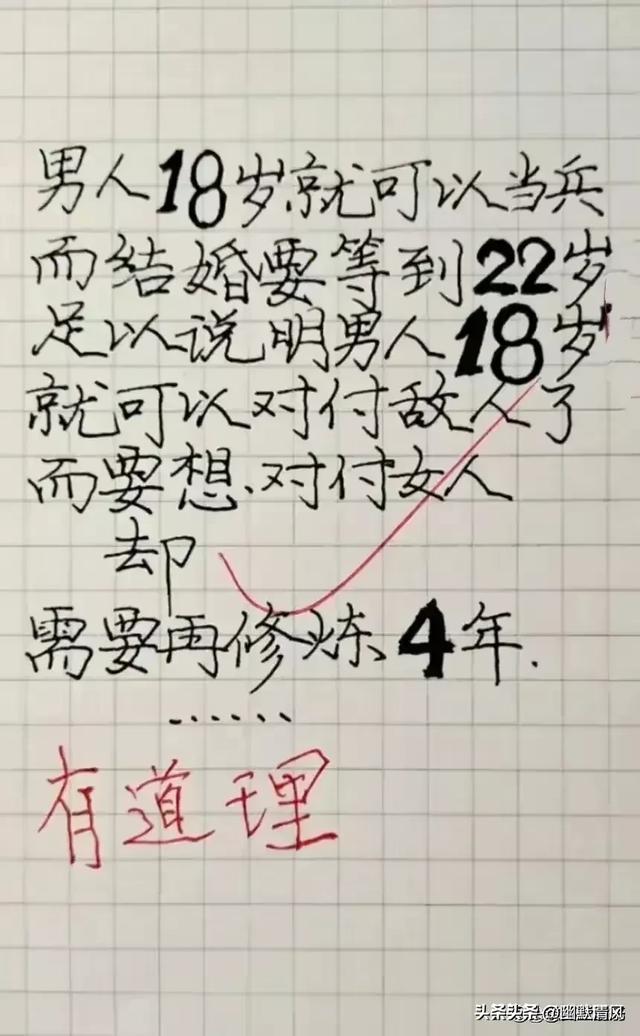 男人18岁就可以当兵
而结婚要等到22岁
足以说明男人18岁
就可以对付敌人了
而要想对付女人
却
需要再修炼4年.
......
有道理
头条头条@幽默清风